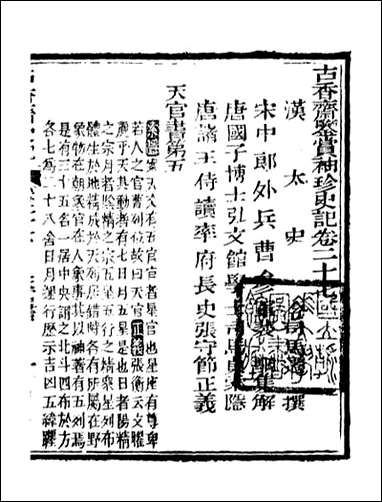 古香齋鑒賞袖珍史記卷二十七
漢太史令司馬遷撰
宋中郎外兵曹參軍裴駰集解
唐國子博士弘文館學士司馬貞索隱
唐諸王侍讀率府長史張守節正義
天官書第五
索隱案天文有五官官者星官也星座有尊卑
若人之官曹列位故曰天官正義張衡云文曜
麗乎天其動者有七日月五星是也日者陽精
之宗月者陰精之宗五星五行之精衆星列布
體生於地精成於天列居錯峙各有所屬在野
象物在朝象官在人象事其以神著有五列焉
是有三十五名一居中央謂之北斗四布於方
各七為二十八舍日月運行歷示吉凶五緯躔